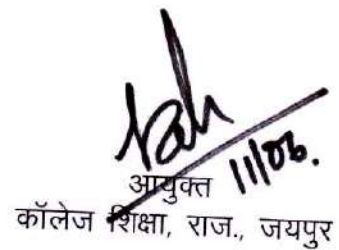 11/06.
आयुक्त
कॉलेज शिक्षा, राज., जयपुर